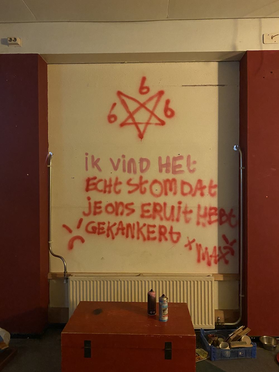 6
6 6
ik vind HEt
ECHt StOM DAt
je ons ERUit HEBt
GEKANKERt x